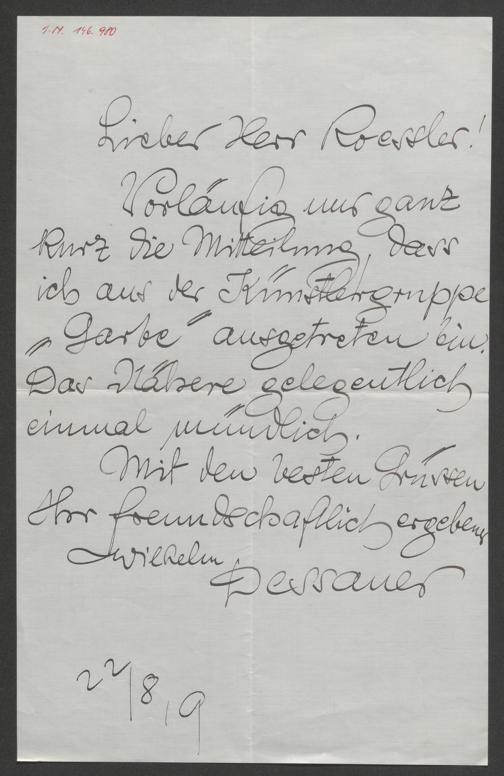 I.N. 146.980
Lieber Herr Roessler!
Vorläufig nur ganz
kurz die Mitteilung, dass
ich aus der Künstlergruppe
„Garbe“ ausgetreten bin.
Das Nähere gelegentlich
einmal mündlich.
Mit den besten Grüssen
Ihr freundschaftlich ergebener
Wilhelm
Dessauer
22/8, 9